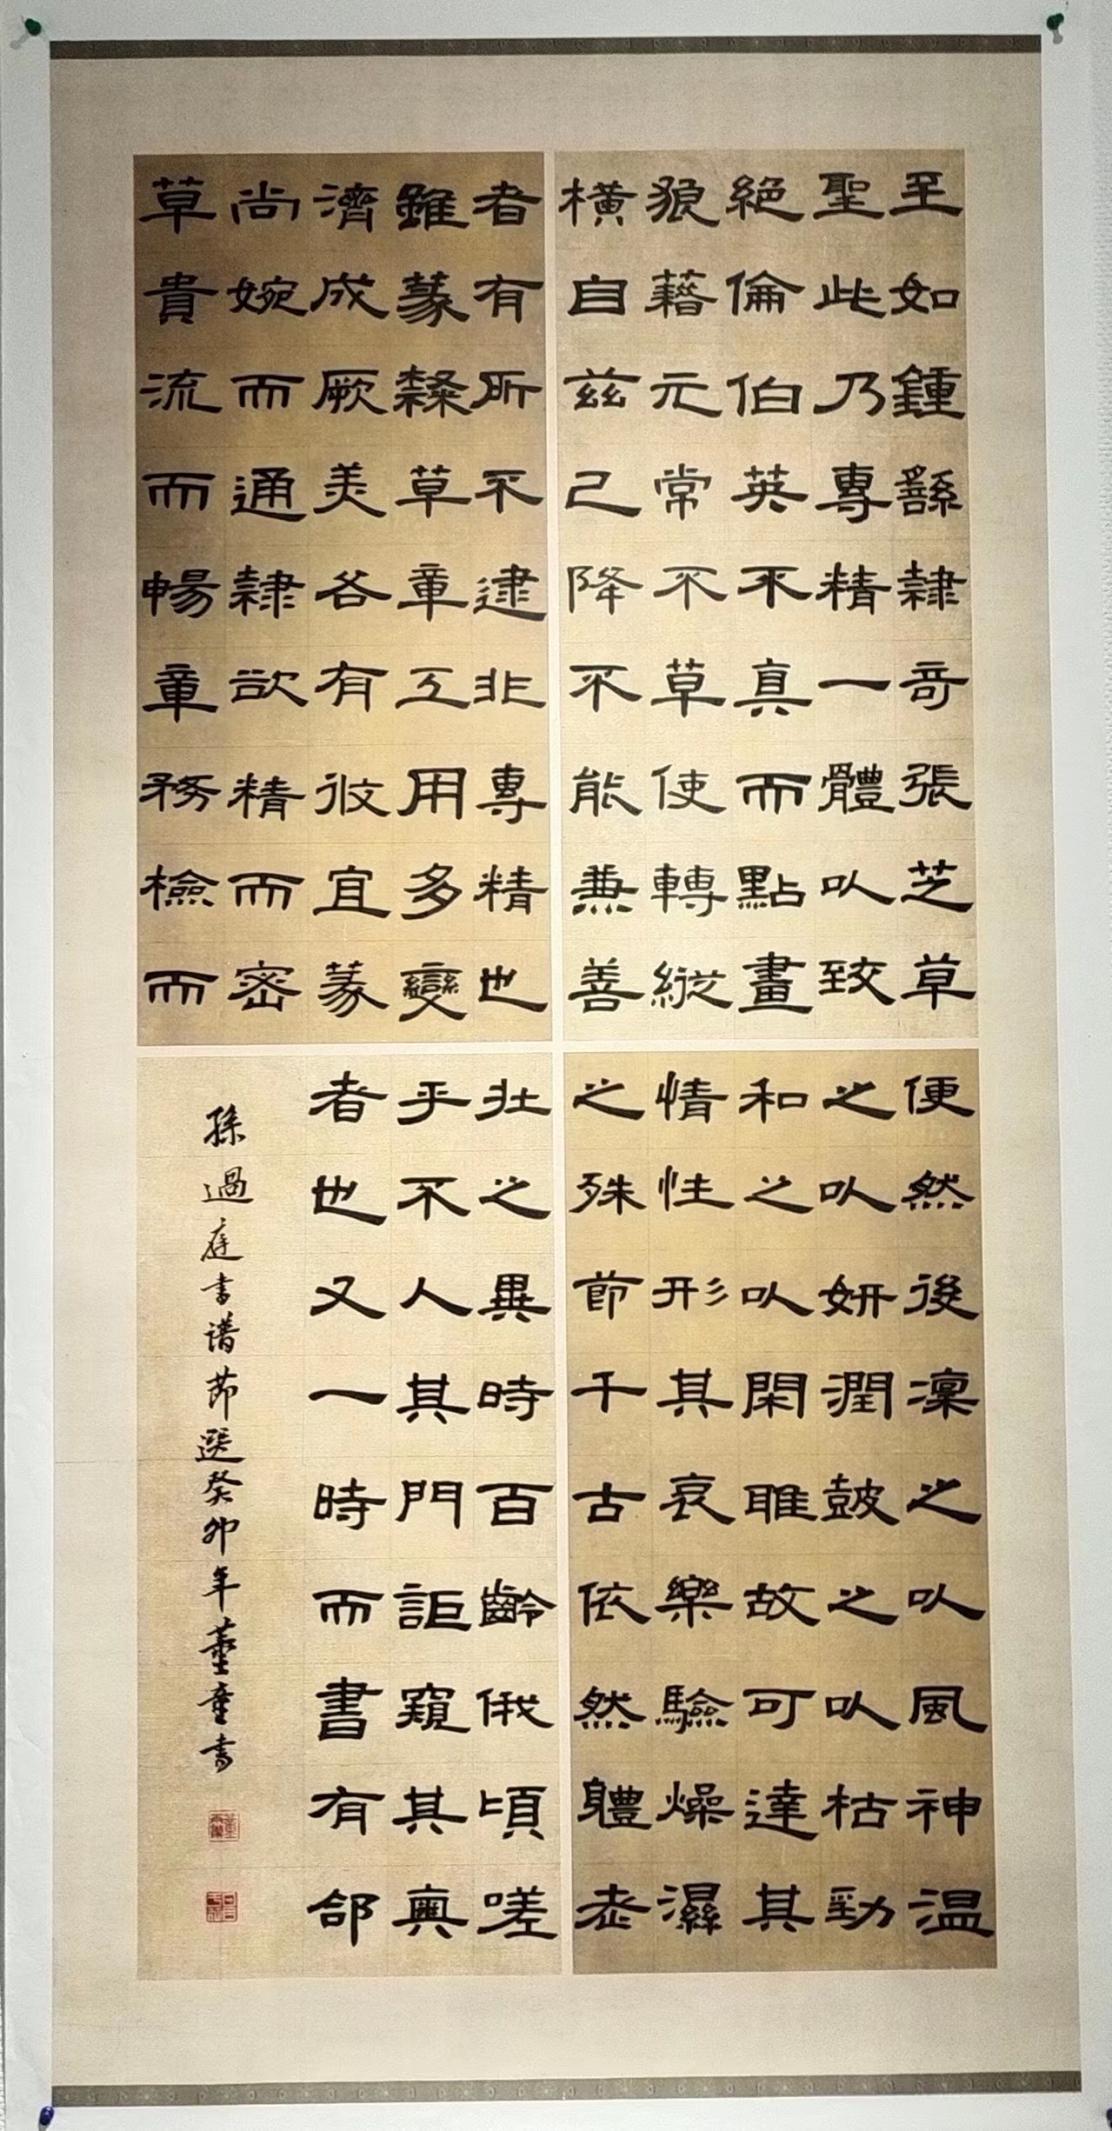 至如鍾繇隸奇張芝草
聖此乃專精一體以致
絕倫伯英不真而點畫
狼藉元常不草使轉縱
橫自茲已降不能兼善
者有所不逮非專精也
雖篆隸草章工用多變
濟成厥美各有攸宜篆
尚婉而通隸欲精而密
草貴流而暢章務檢而
便然後凜之以風神溫
之以妍潤鼓之以枯勁
和之以閑雅故可達其
情性形其哀樂驗燥濕
之殊節千古依然體老
壯之異時百齡俄頃嗟
乎不入其門詎窺其奧
者也又一時而書有郃
孫過庭書譜節選癸卯年董童書